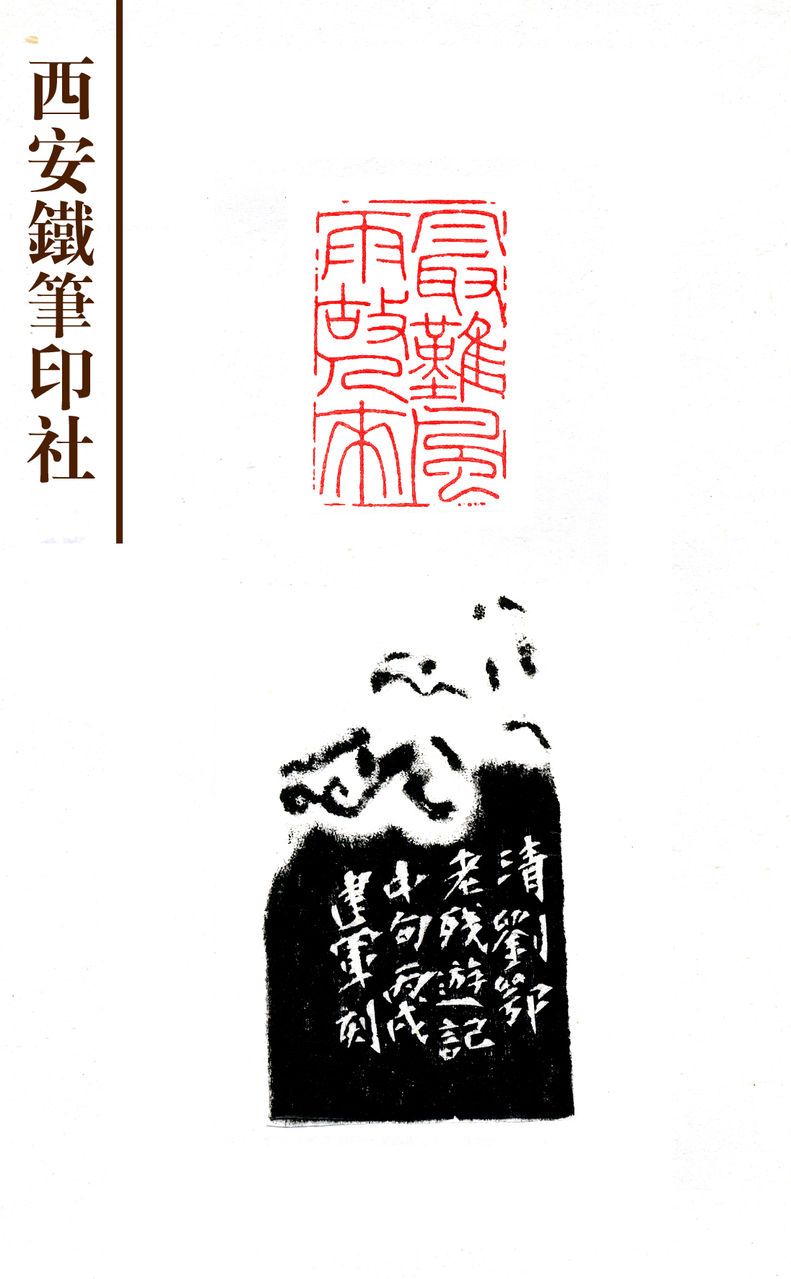 西安鐵筆印社
最難風
雨故人來
清劉鄂
老殘遊記
中句丙戌
建軍刻